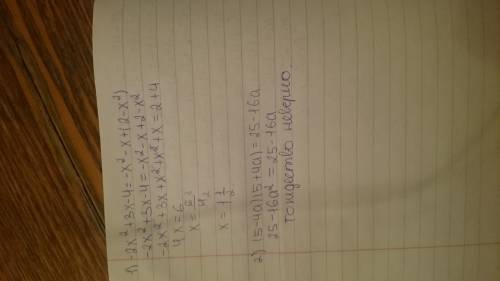 1) -2x²+3x-4=-x²-x+(2-x²)
-2x²+3x-4=-x²-x+2-x²
-2x²+3x+x²+x²+x=2+4
4x=6
x=6/4
x=1 1/2
2) (5-4a)(5+4a)=25-16a
25-16a²=25-16a
тождество неверно.